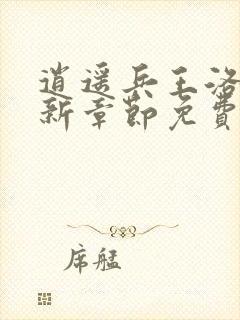 逍遥兵王洛
新章节免费
席艋